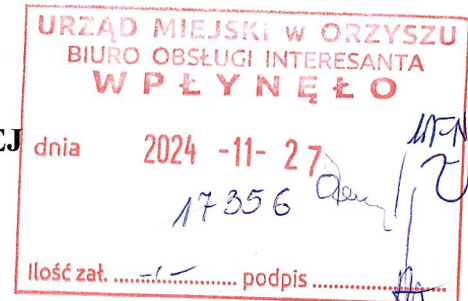 URZĄD MIEJSKI w ORZYSZU
BIURO OBSŁUGI INTERESANTA
WPŁYNĘŁO
EJ
dnia 2024 -11- 27
17356
Ilość zał. ....-1-.... podpis ....